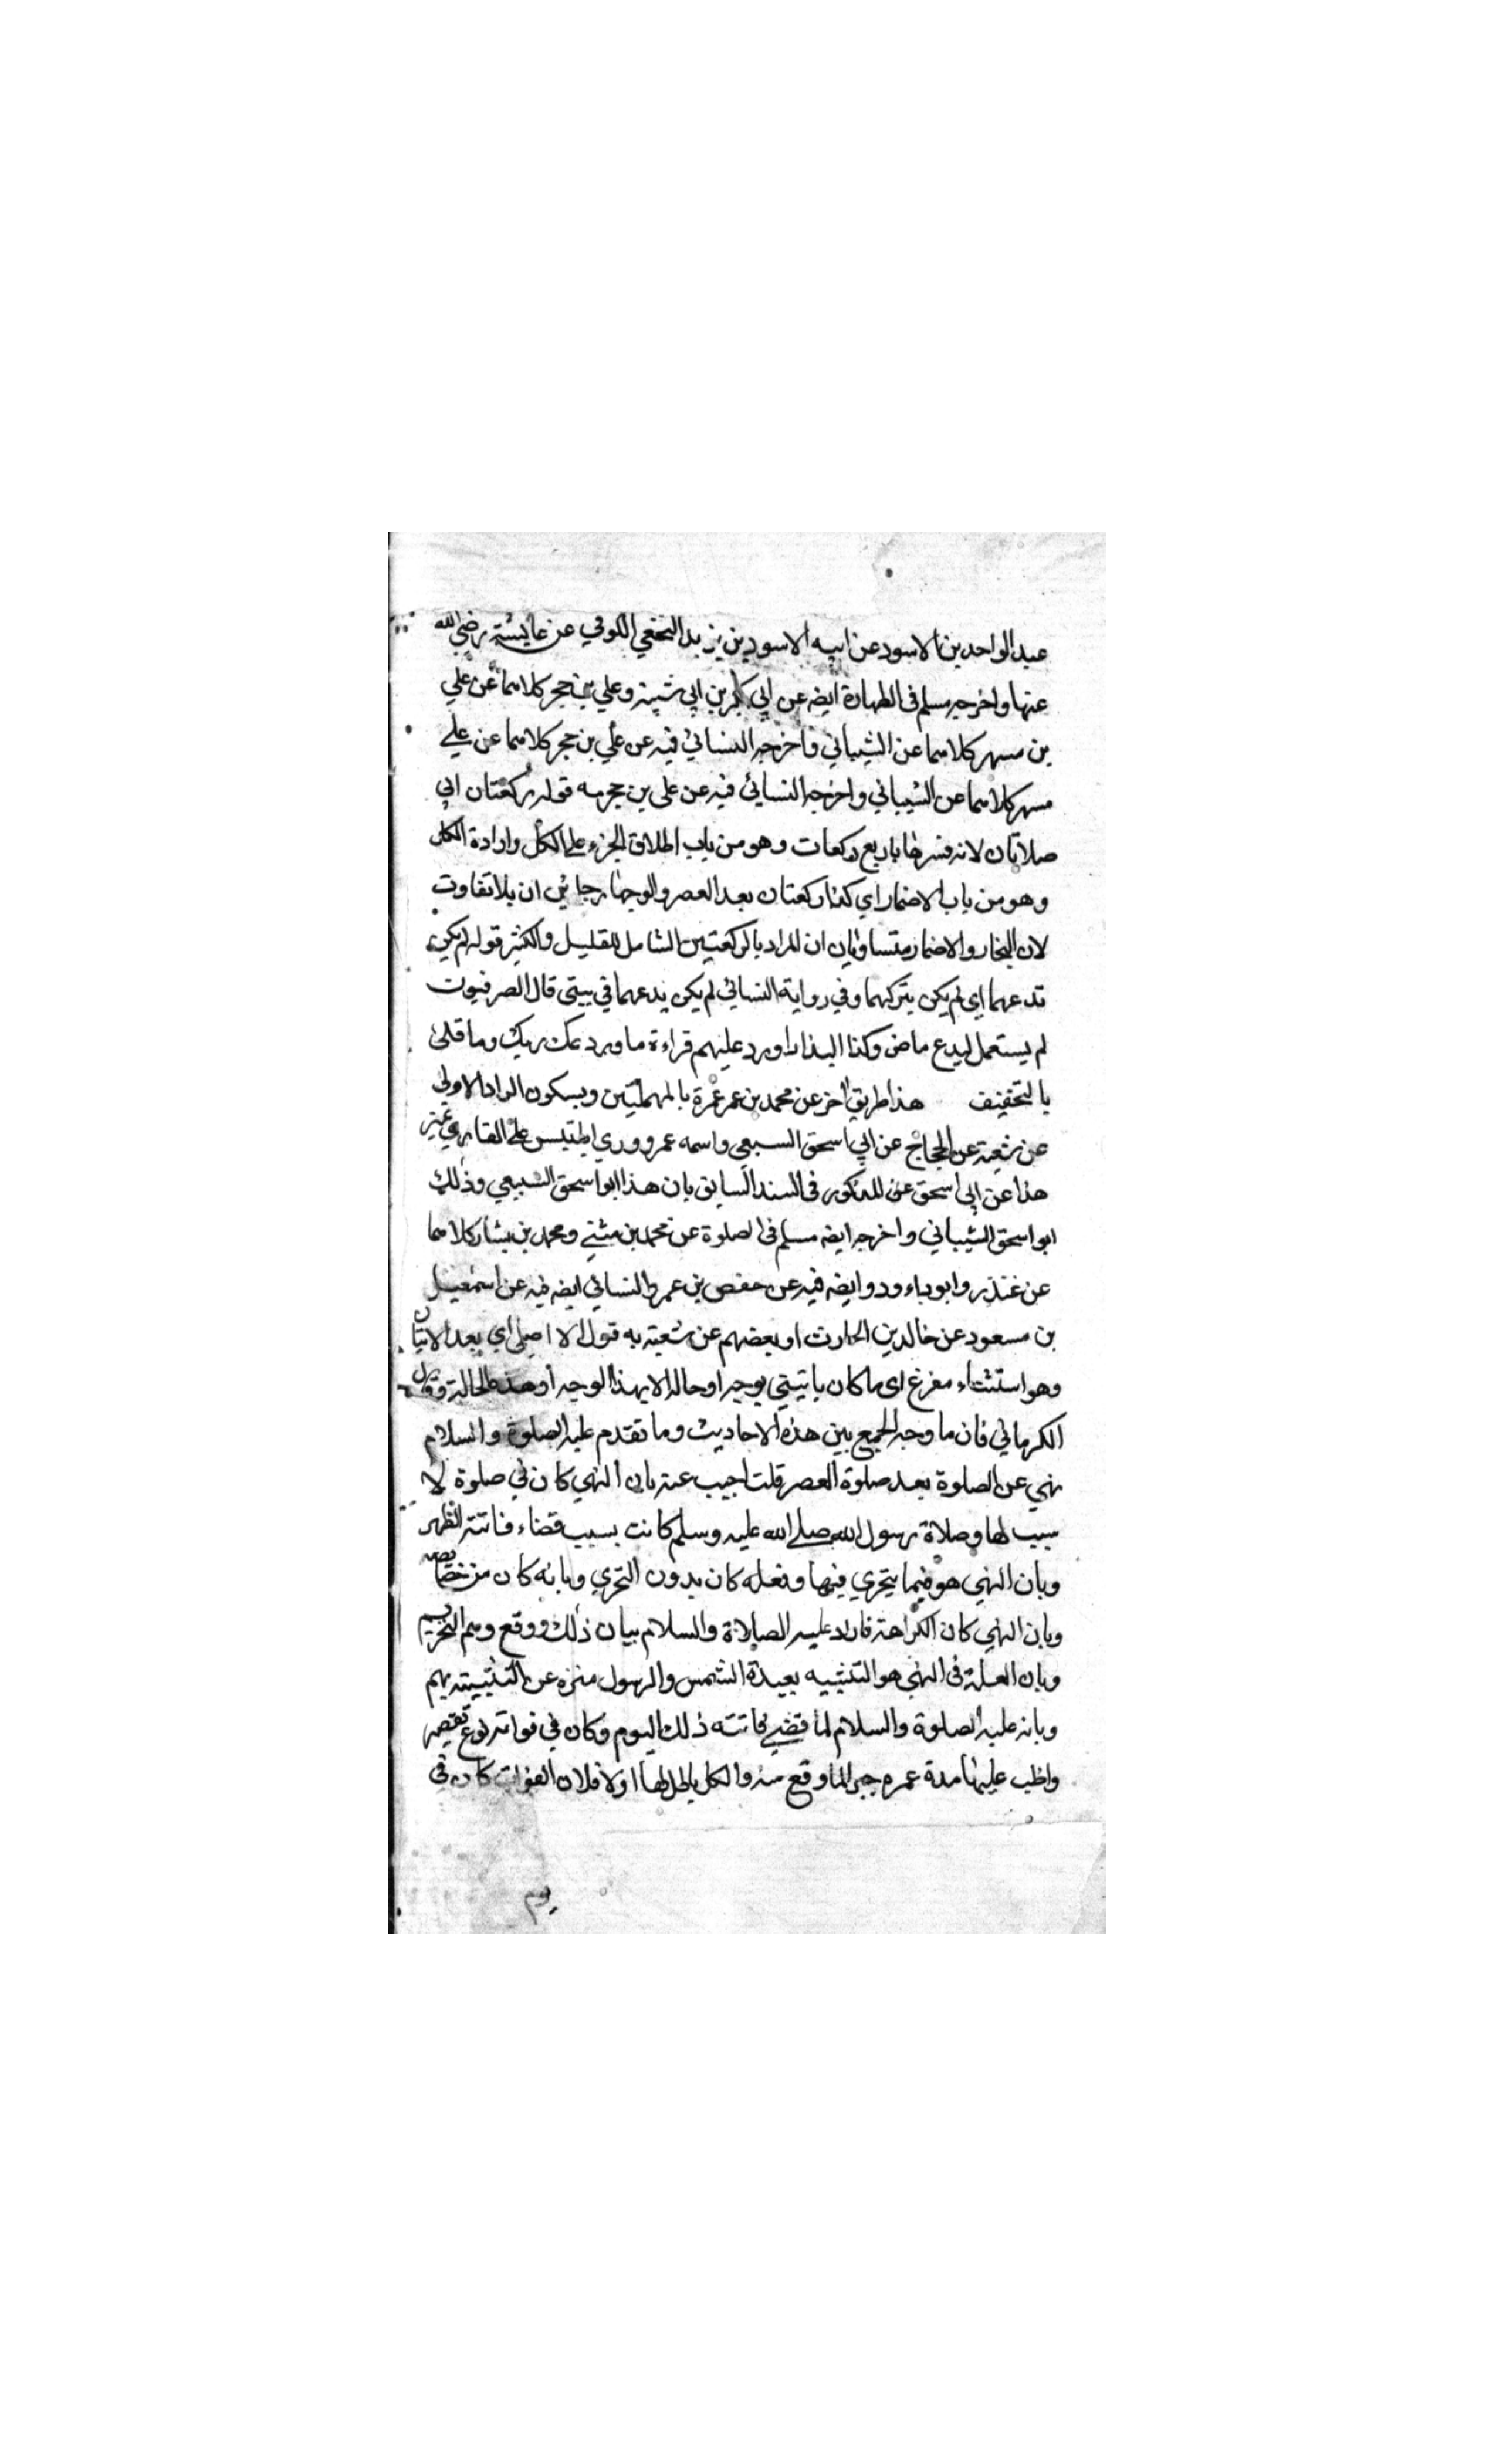 عبد الواحد بن الاسود عن ابيه الاسود بن يزيد النخعي الكوفي عن عايشة رضي الله
عنها واخرجه مسلم فى الطهارة ايضه عن ابي بكر بن ابي شيبة وعلي بن حجر كلاهما عن علي
بن مسهر كلاهما عن الشيباني فاخرجه النسائي فيه عن علي بن حجر كلاهما عن علي
مسهر كلاهما عن الشيباني واخرجه النسائي فيه عن على بن حجر به قوله ركعتان اي
صلاتان لانه فسرها باربع ركعات وهو من باب اطلاق الجزء على الكل وارادة الكل
وهو من باب الاضمار اي كذا ركعتان بعد العصر والوجهان جائزان بلا تفاوت
لان المجاز والاضمار متساويان او ان المراد بالركعتين الشامل للقليل والكثير قوله لم يكن
تدعهما اي لم يكن يتركهما وفي رواية النسائي لم يكن يدعهما في بيتى قال الصرفيون
لم يستعمل ليدع ماض وكذا ليذر اورد عليهم قراءة ما ودعك ربك وما قلى
بالتخفيف هذا طريق اخر عن محمد بن عرعرة بالمهملتين وبسكون الراء الاولى
عن شعبة عن الحجاج عن ابي اسحق السبيعي واسمه عمرو على القاري
هذا عن ابي اسحق عن المذكور فى السند السابق بان هذا ابو اسحق السبيعي وذلك
ابو اسحق الشيباني واخرجه ايضه مسلم فى الصلوة عن محمد بن مثنى ومحمد بن بشار كلاهما
عن غندر وابو داود ايضه فيه عن حفص بن عمر والنسائي ايضه فيه عن اسمعيل
بن مسعود عن خالد بن الحارث او بعضهم عن شعبة به قوله الا صلى اي بعد الاتيان
وهو استثناء مفرغ اى ما كان ياتيني بوجه او حالة الا بهذا الوجه او هذه الحالة وقال
الكرماني فان ما وجه الجمع بين هذه الاحاديث وما تقدم عليه الصلوة والسلام
نهي عن الصلوة بعد صلوة العصر قلت اجيب عنه بان النهي كان في صلوة لا
سبب لها وصلاة رسول الله صلى الله عليه وسلم كانت بسبب قضاء فائتة الظهر
وبان النهي هو فيما يتحرى فيها وفعله كان بدون التحري وبانه كان من خصائصه
وبان النهي كان الكراهة فاراد عليه الصلاة والسلام بيان ذلك ووقع وهم التحريم
وبان العلة فى النهي هو التشبيه بعبدة الشمس والرسول منزه عن التشبيه بهم
وبانه عليه الصلوة والسلام لما قضى فائتة ذلك اليوم وكان في فواته نوع تقصير
واظب عليها مدة عمره جبرا لما وقع منه والكل باطل اما اولا فلان الفوات كان في
يوم